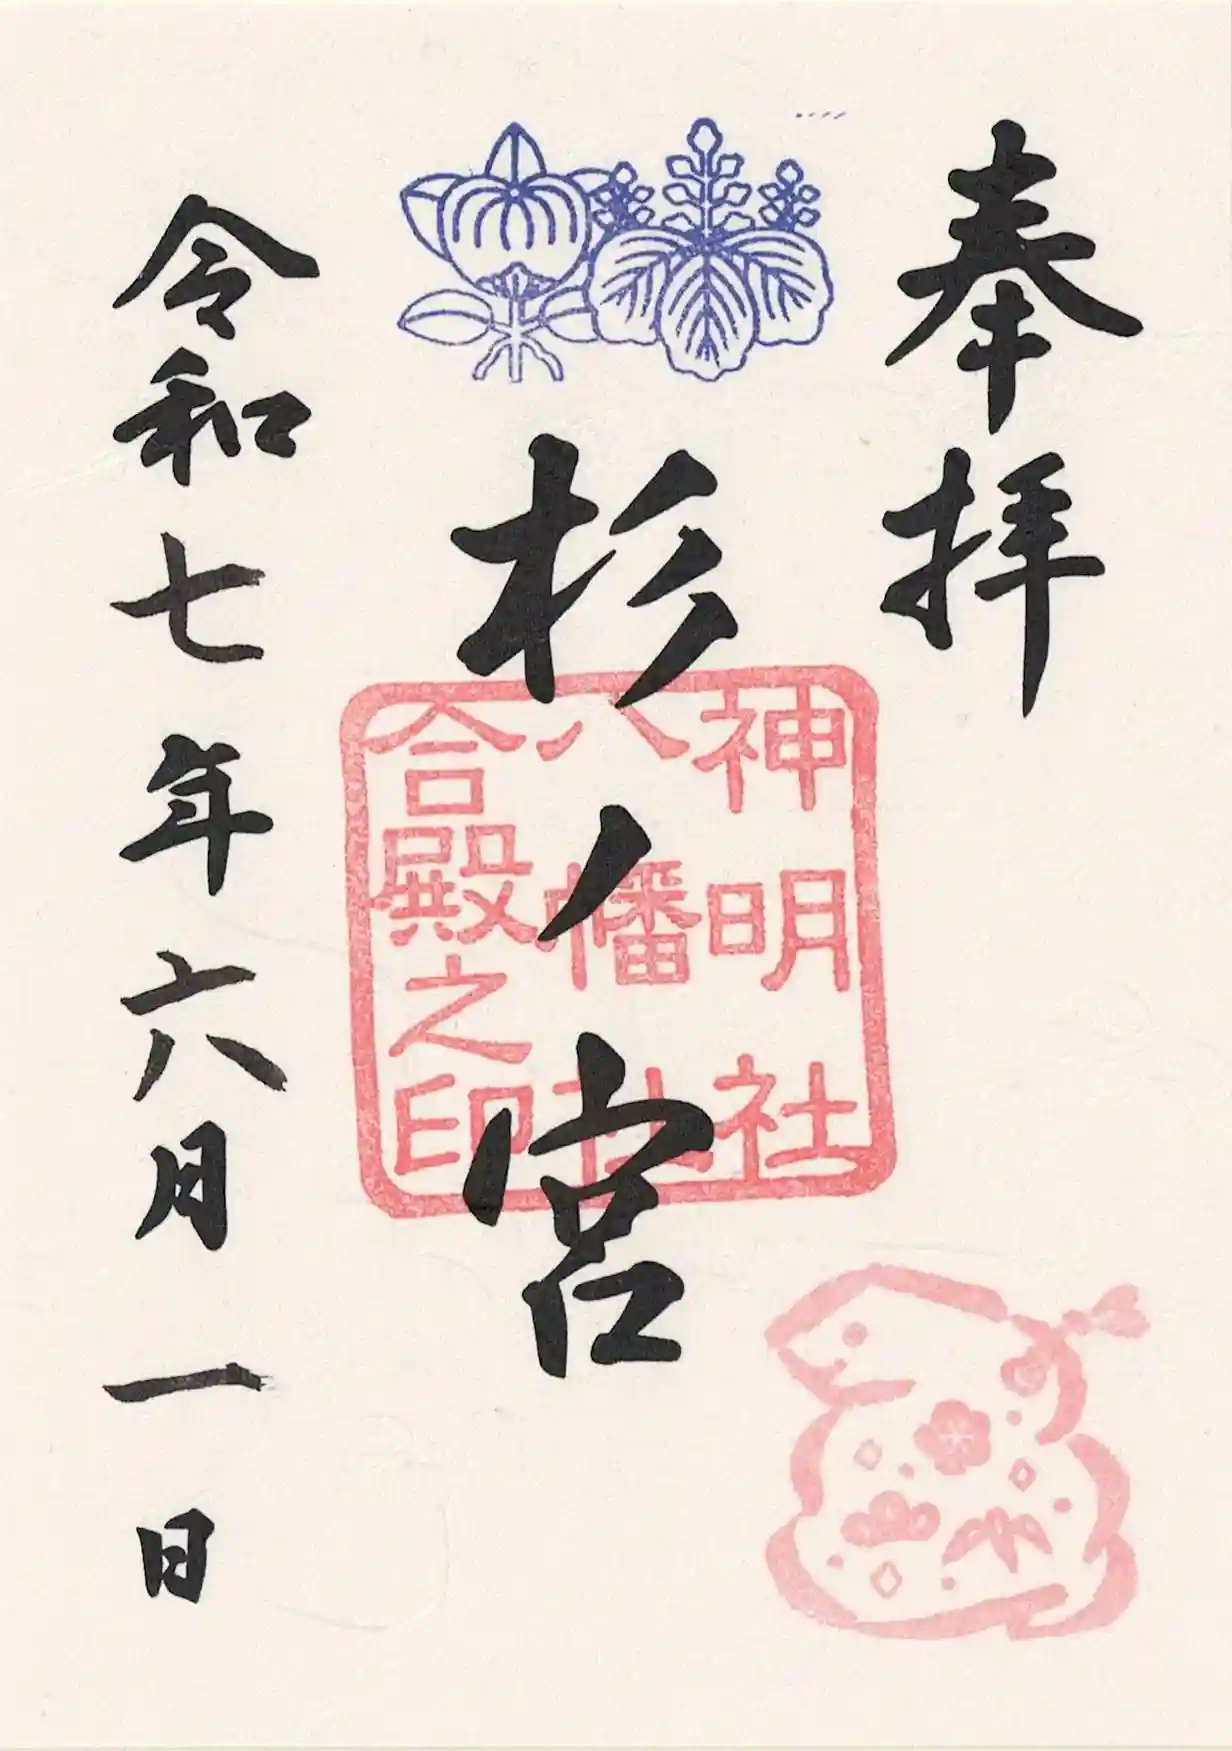 奉拝
杉ノ宮
神明社
八幡社
合殿之印
令和七年六月一日